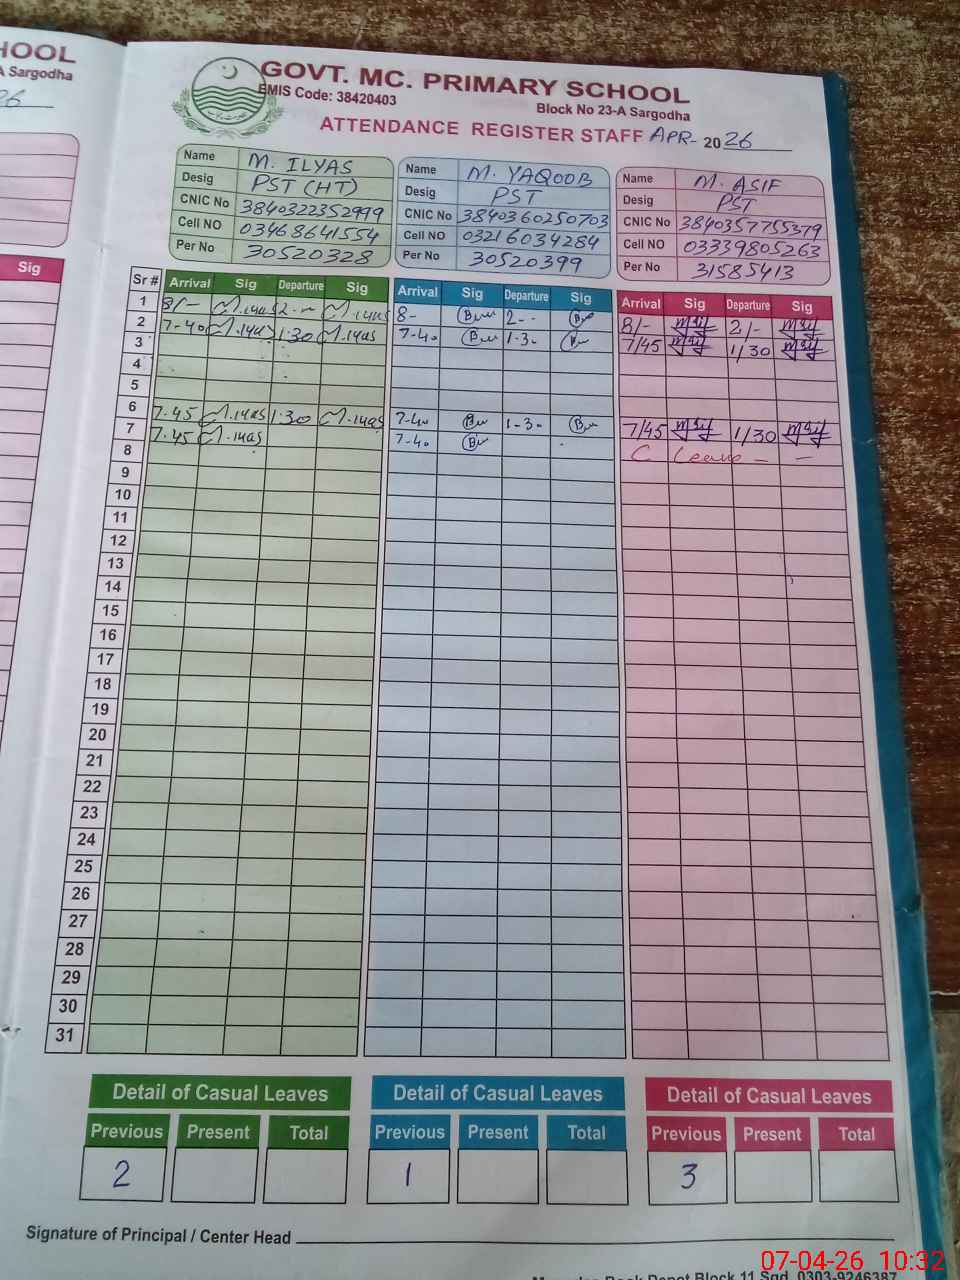 HOOL
A Sargodha
26
Sig
GOVT. MC. PRIMARY SCHOOL
EMIS Code: 38420403
Block No 23-A Sargodha
ATTENDANCE REGISTER STAFF APR- 2026
Name M. ILYAS
Desig PST (HT)
CNIC No 3840322352999
Cell NO 03468641554
Per No 30520328
Name M. YAQOOB
Desig PST
CNIC No 3840360250703
Cell NO 03216034284
Per No 30520399
Name M. ASIF
Desig PST
CNIC No 3840357755379
Cell NO 03339805263
Per No 31585413
Sr # Arrival Sig Departure Sig Arrival Sig Departure Sig Arrival Sig Departure Sig
1 8/- 2-- 8- 2-- 8/- 2/-
2 7-40 1:30 7-40 1-30 7/45 1/30
3
4
5
6 7.45 1:30 7-40 1-30 7/45 1/30
7 7.45 7-40 C Leave - -
8
9
10
11
12
13
14
15
16
17
18
19
20
21
22
23
24
25
26
27
28
29
30
31
Detail of Casual Leaves Detail of Casual Leaves Detail of Casual Leaves
Previous Present Total Previous Present Total Previous Present Total
2 1 3
Signature of Principal / Center Head
07-04-26 10:32
Book Depot Block 11 Sgd. 0303-9246387